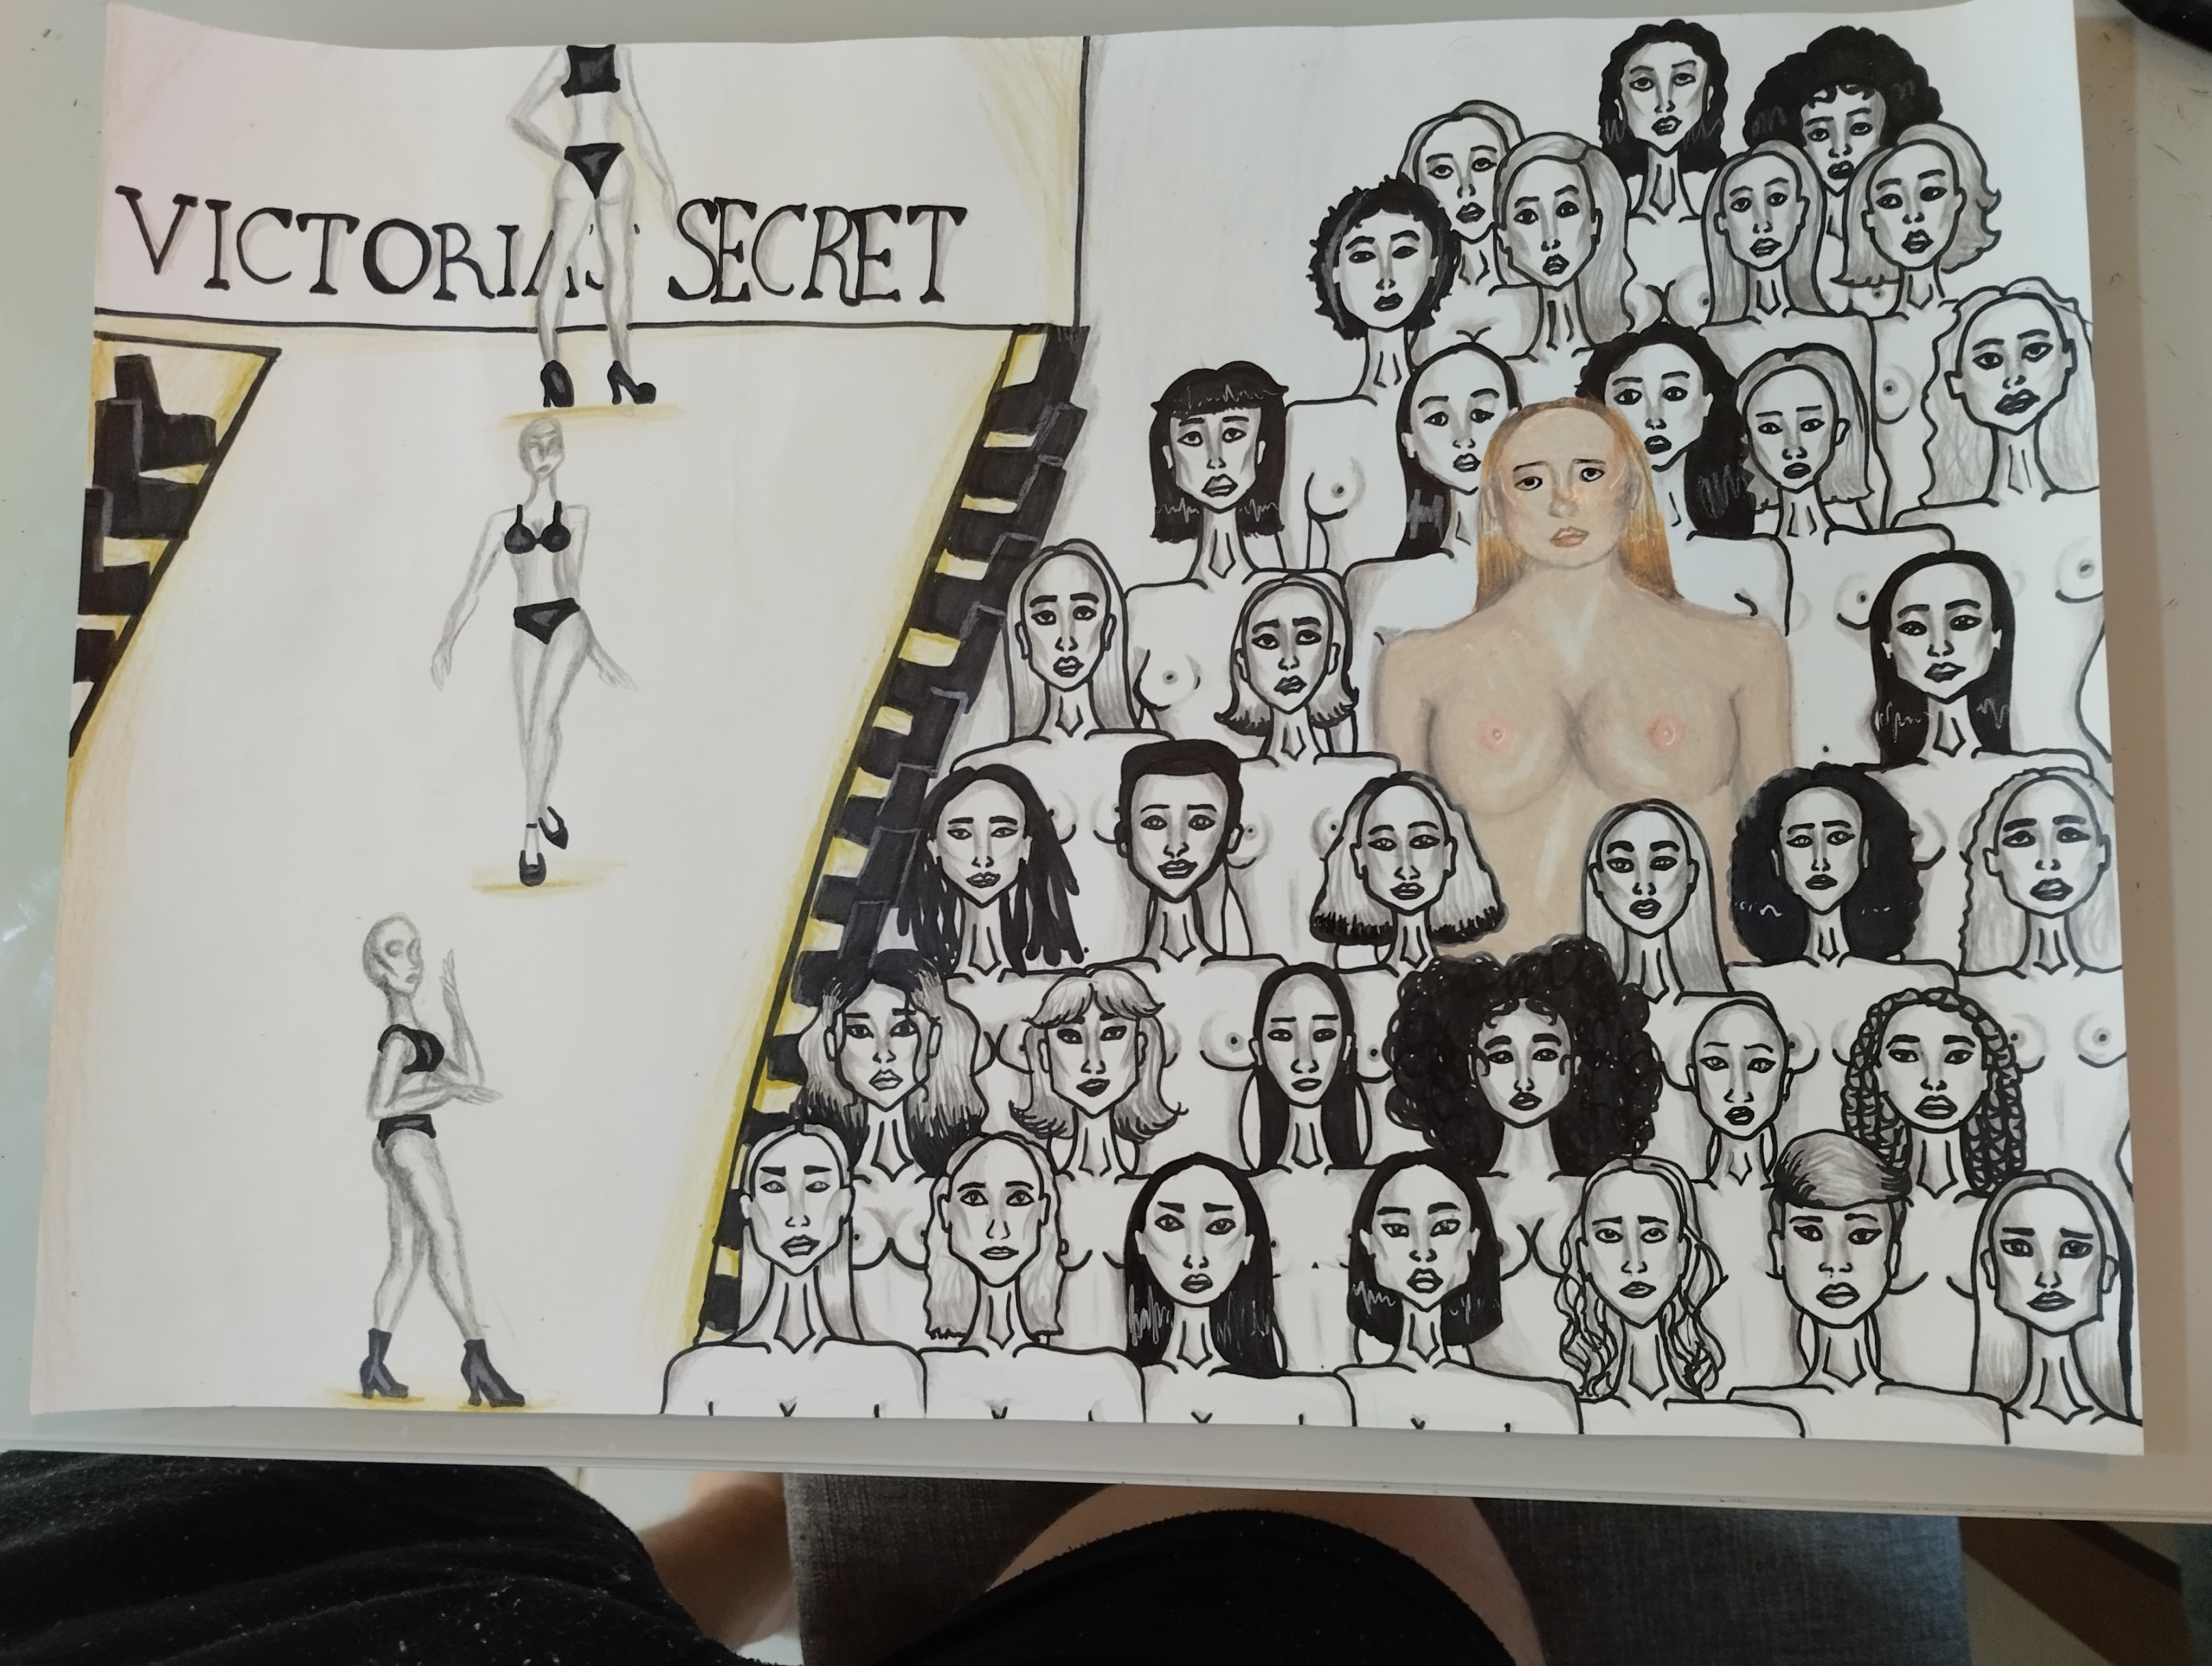 VICTORIAS SECRET